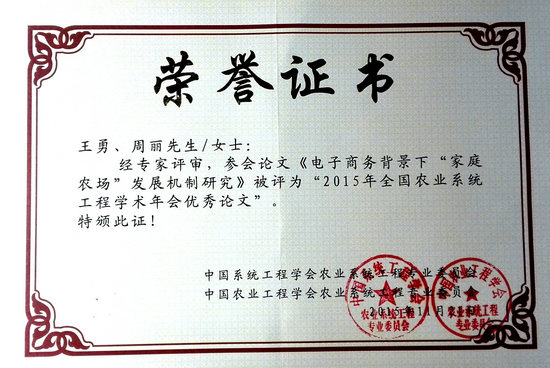 荣誉证书
王勇、周丽先生/女士：
经专家评审，参会论文《电子商务背景下“家庭
农场”发展机制研究》被评为“2015年全国农业系统
工程学术年会优秀论文”。
特颁此证！
中国系统工程学会农业系统工程专业委员会
中国农业工程学会农业系统工程专业委员会
2015年11月
中国系统工程学会
农业系统工程
专业委员会
中国农业工程学会
农业系统工程
专业委员会